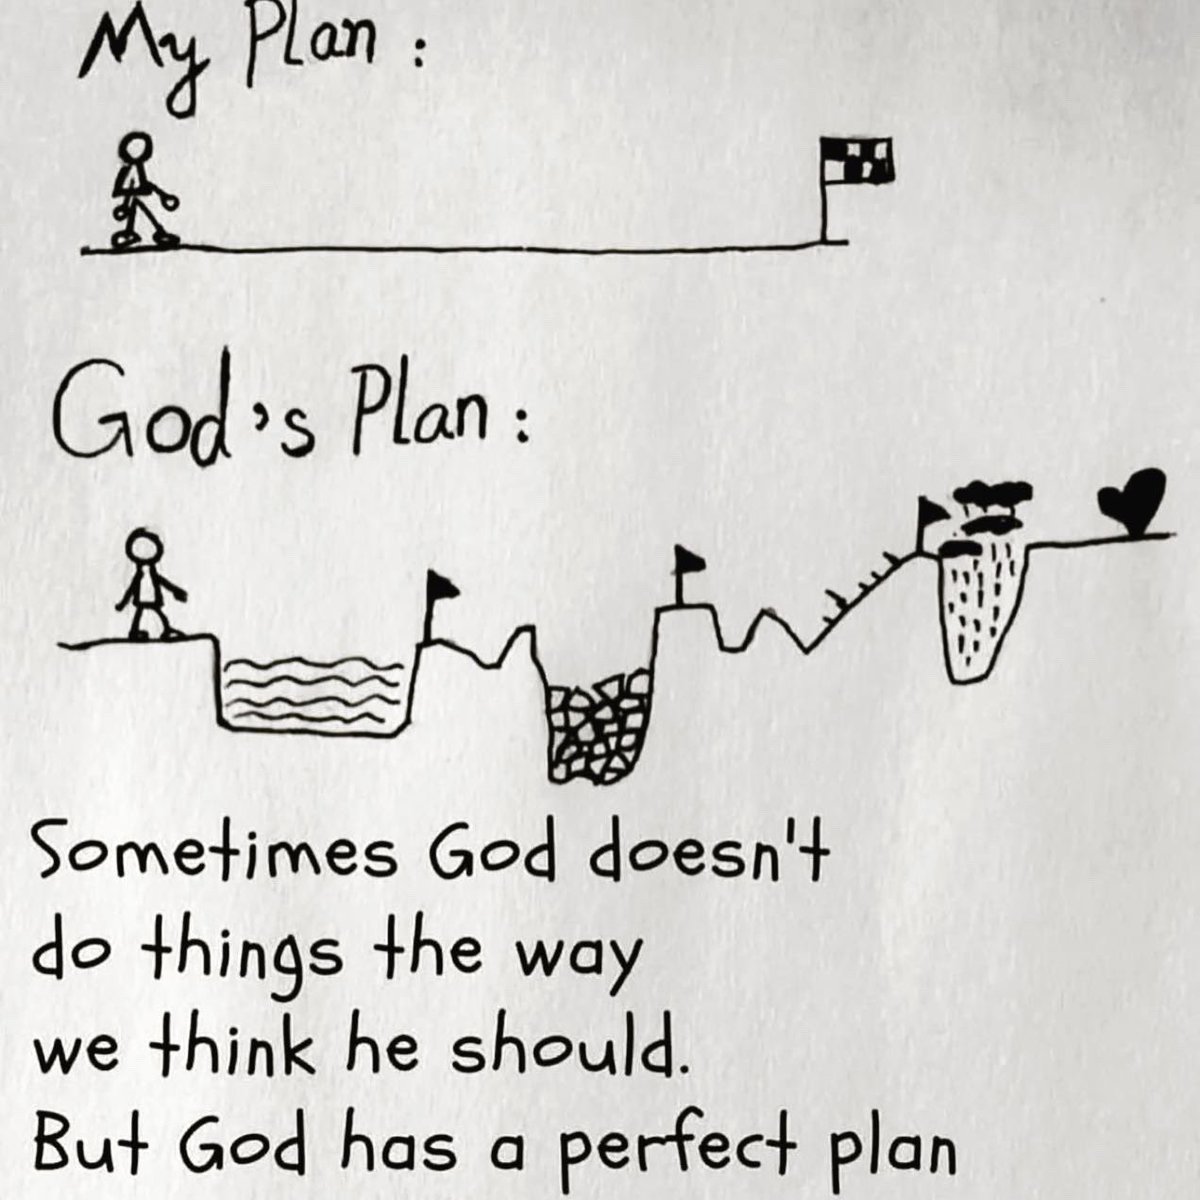 My Plan :
God's Plan :
Sometimes God doesn't
do things the way
we think he should.
But God has a perfect plan